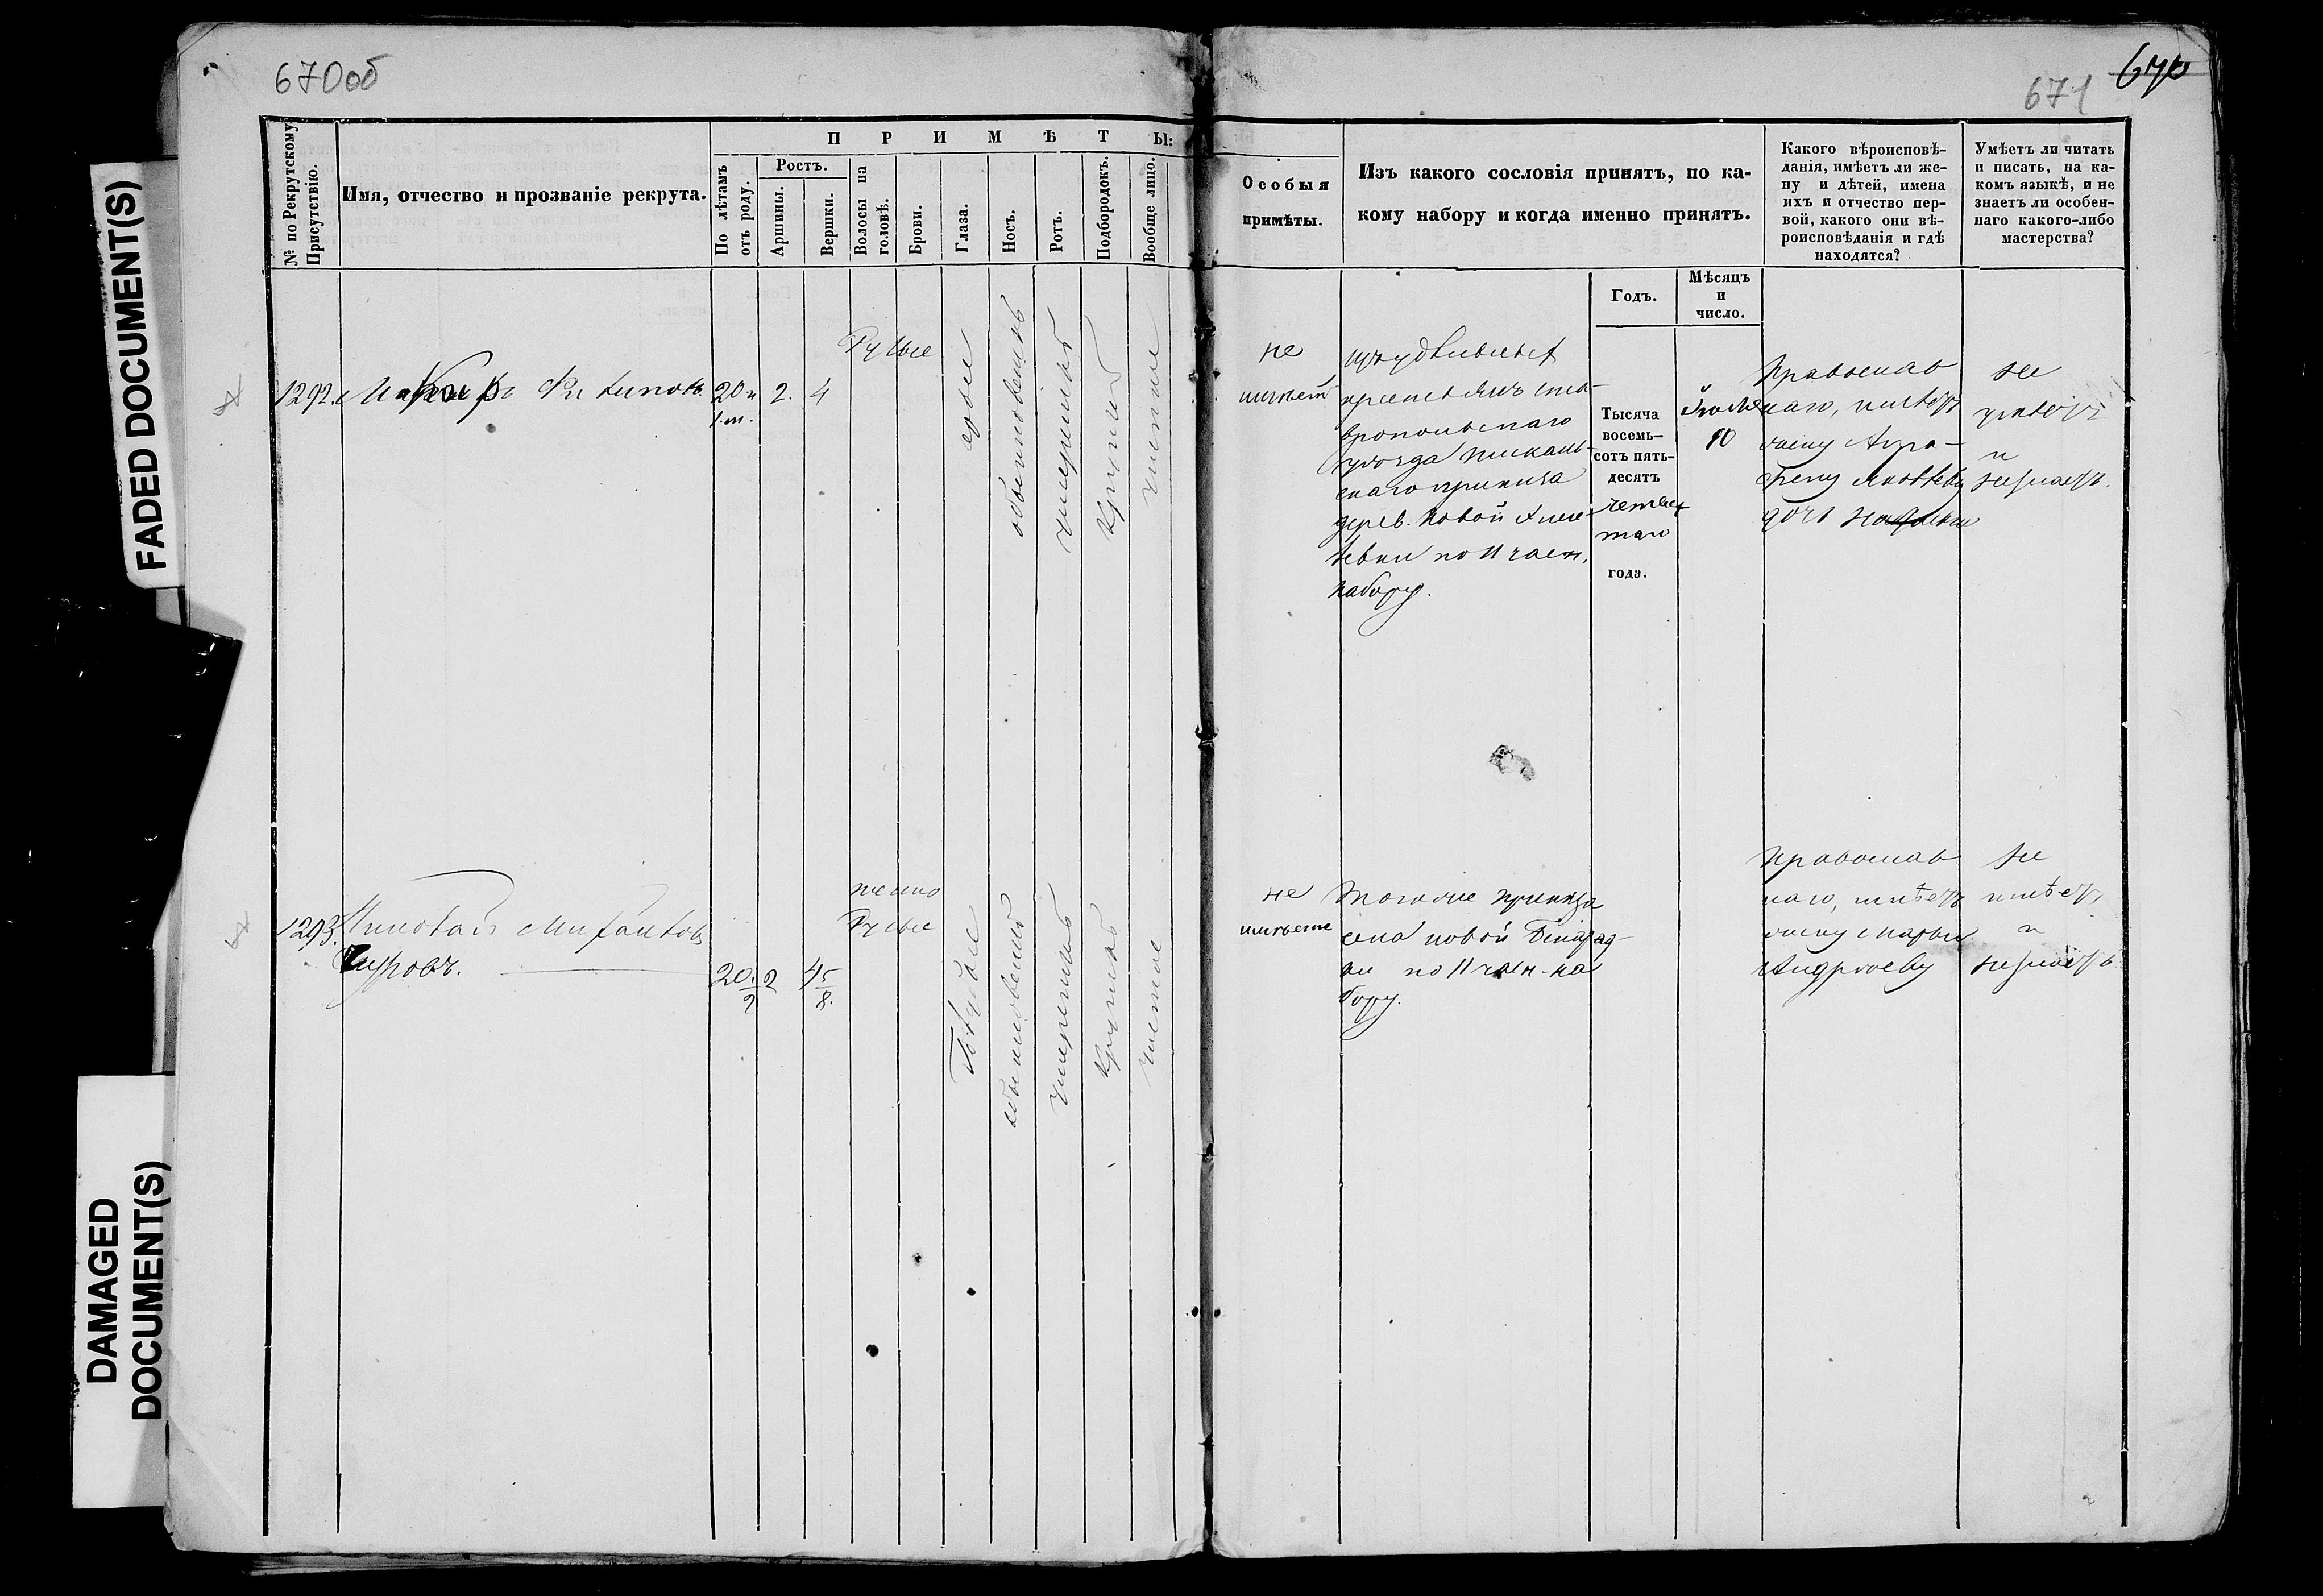 670об
671
670
FADED DOCUMENT(S)
DAMAGED
DOCUMENT(S)
№ по Рекрутскому
Присутствію.
Имя, отчество и прозваніе рекрута.
ПРИМѢТЫ:
По лѣтамъ
отъ роду.
Ростъ.
Аршины.
Вершки.
Волосы на
головѣ.
Брови.
Глаза.
Носъ.
Ротъ.
Подбородокъ.
Вообще лицо.
Особыя
примѣты.
Изъ какого сословія принятъ, по ка-
кому набору и когда именно принятъ.
Какого вѣроисповѣ-
данія, имѣетъ ли же-
ну и дѣтей, имена
ихъ и отчество пер-
вой, какого они вѣ-
роисповѣданія и гдѣ
находятся?
Умѣетъ ли читать
и писать, на ка-
комъ языкѣ, и не
знаетъ ли особен-
наго какого-либо
мастерства?
Годъ.
Мѣсяцъ
и
число.
1292.
Филиповъ
20 и
1. м.
2.
4
Русые
сѣрые
обыкновенный
умеренный
круглый
чистое
не
имѣетъ
изъ удѣльныхъ
крестьянъ Ста-
вропольскаго
уѣзда
скаго приказа
дерев. Новой
по II част.
набору.
Тысяча
восемь-
сотъ пять-
десятъ
четвер
таго
года.
10
Православ
наго, имѣетъ
жену Агра-
фену Яковлеву
дочь
не
умѣетъ
и
незнаетъ.
1293.
Николай Михайловъ
20.
2
2
4 5/8.
темно
Русые
Голубые
обыкновенный
умеренный
круглый
чистое
не
имѣетъ
Тогоже приказа
села Новой Бинарад-
ки по II част. на
бору.
Православ
наго, имѣетъ
жену Марью
Андрееву
не
умѣетъ,
и
незнаетъ